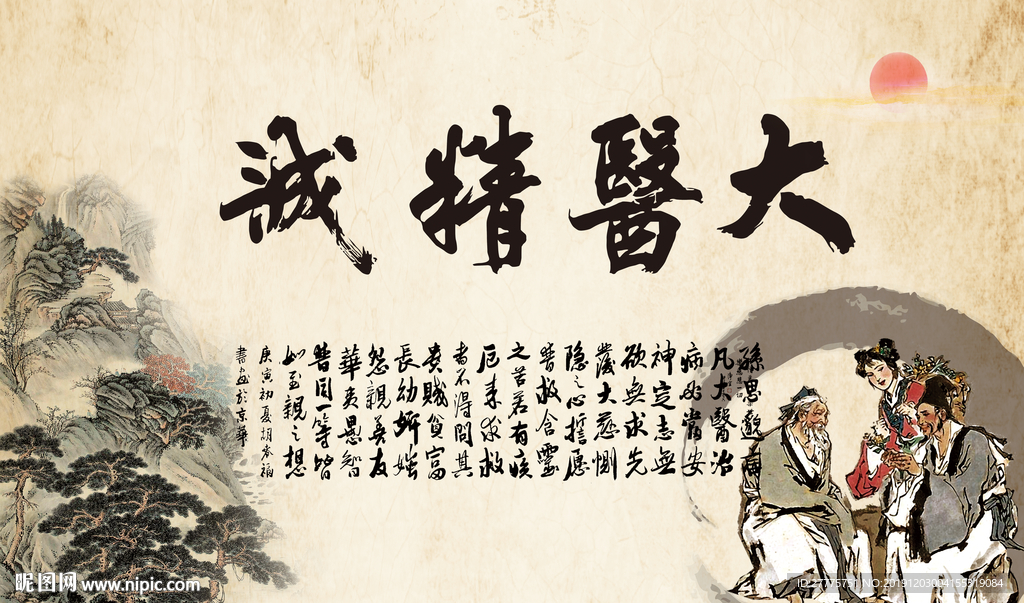 大醫精誠
孫思邈
凡大醫治
病必當安
神定志無
欲無求先
發大慈惻
隱之心誓愿
普救含靈
之苦若有疾
厄來求救
者不得問其
貴賤貧富
長幼妍媸
怨親善友
華夷愚智
普同一等皆
如至親之想
庚寅初夏胡
書画於京華
昵图网 www.nipic.com
ID:27775751 NO:20191203004155519084